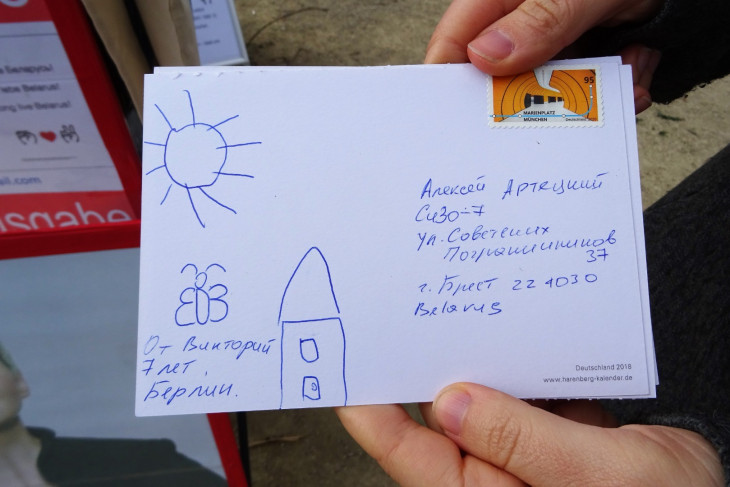 Беларусь!
ebe Belarus!
ong live Belarus!
ail.com
usgabe
95
MARIENPLATZ
MÜNCHEN
Алексей Артецкий
СиЗО-7
ул. Советских
Пограничников
37
г. Брест 224030
Belarus
От Викторий
7 лет,
Берлин.
Deutschland 2018
www.harenberg-kalender.de